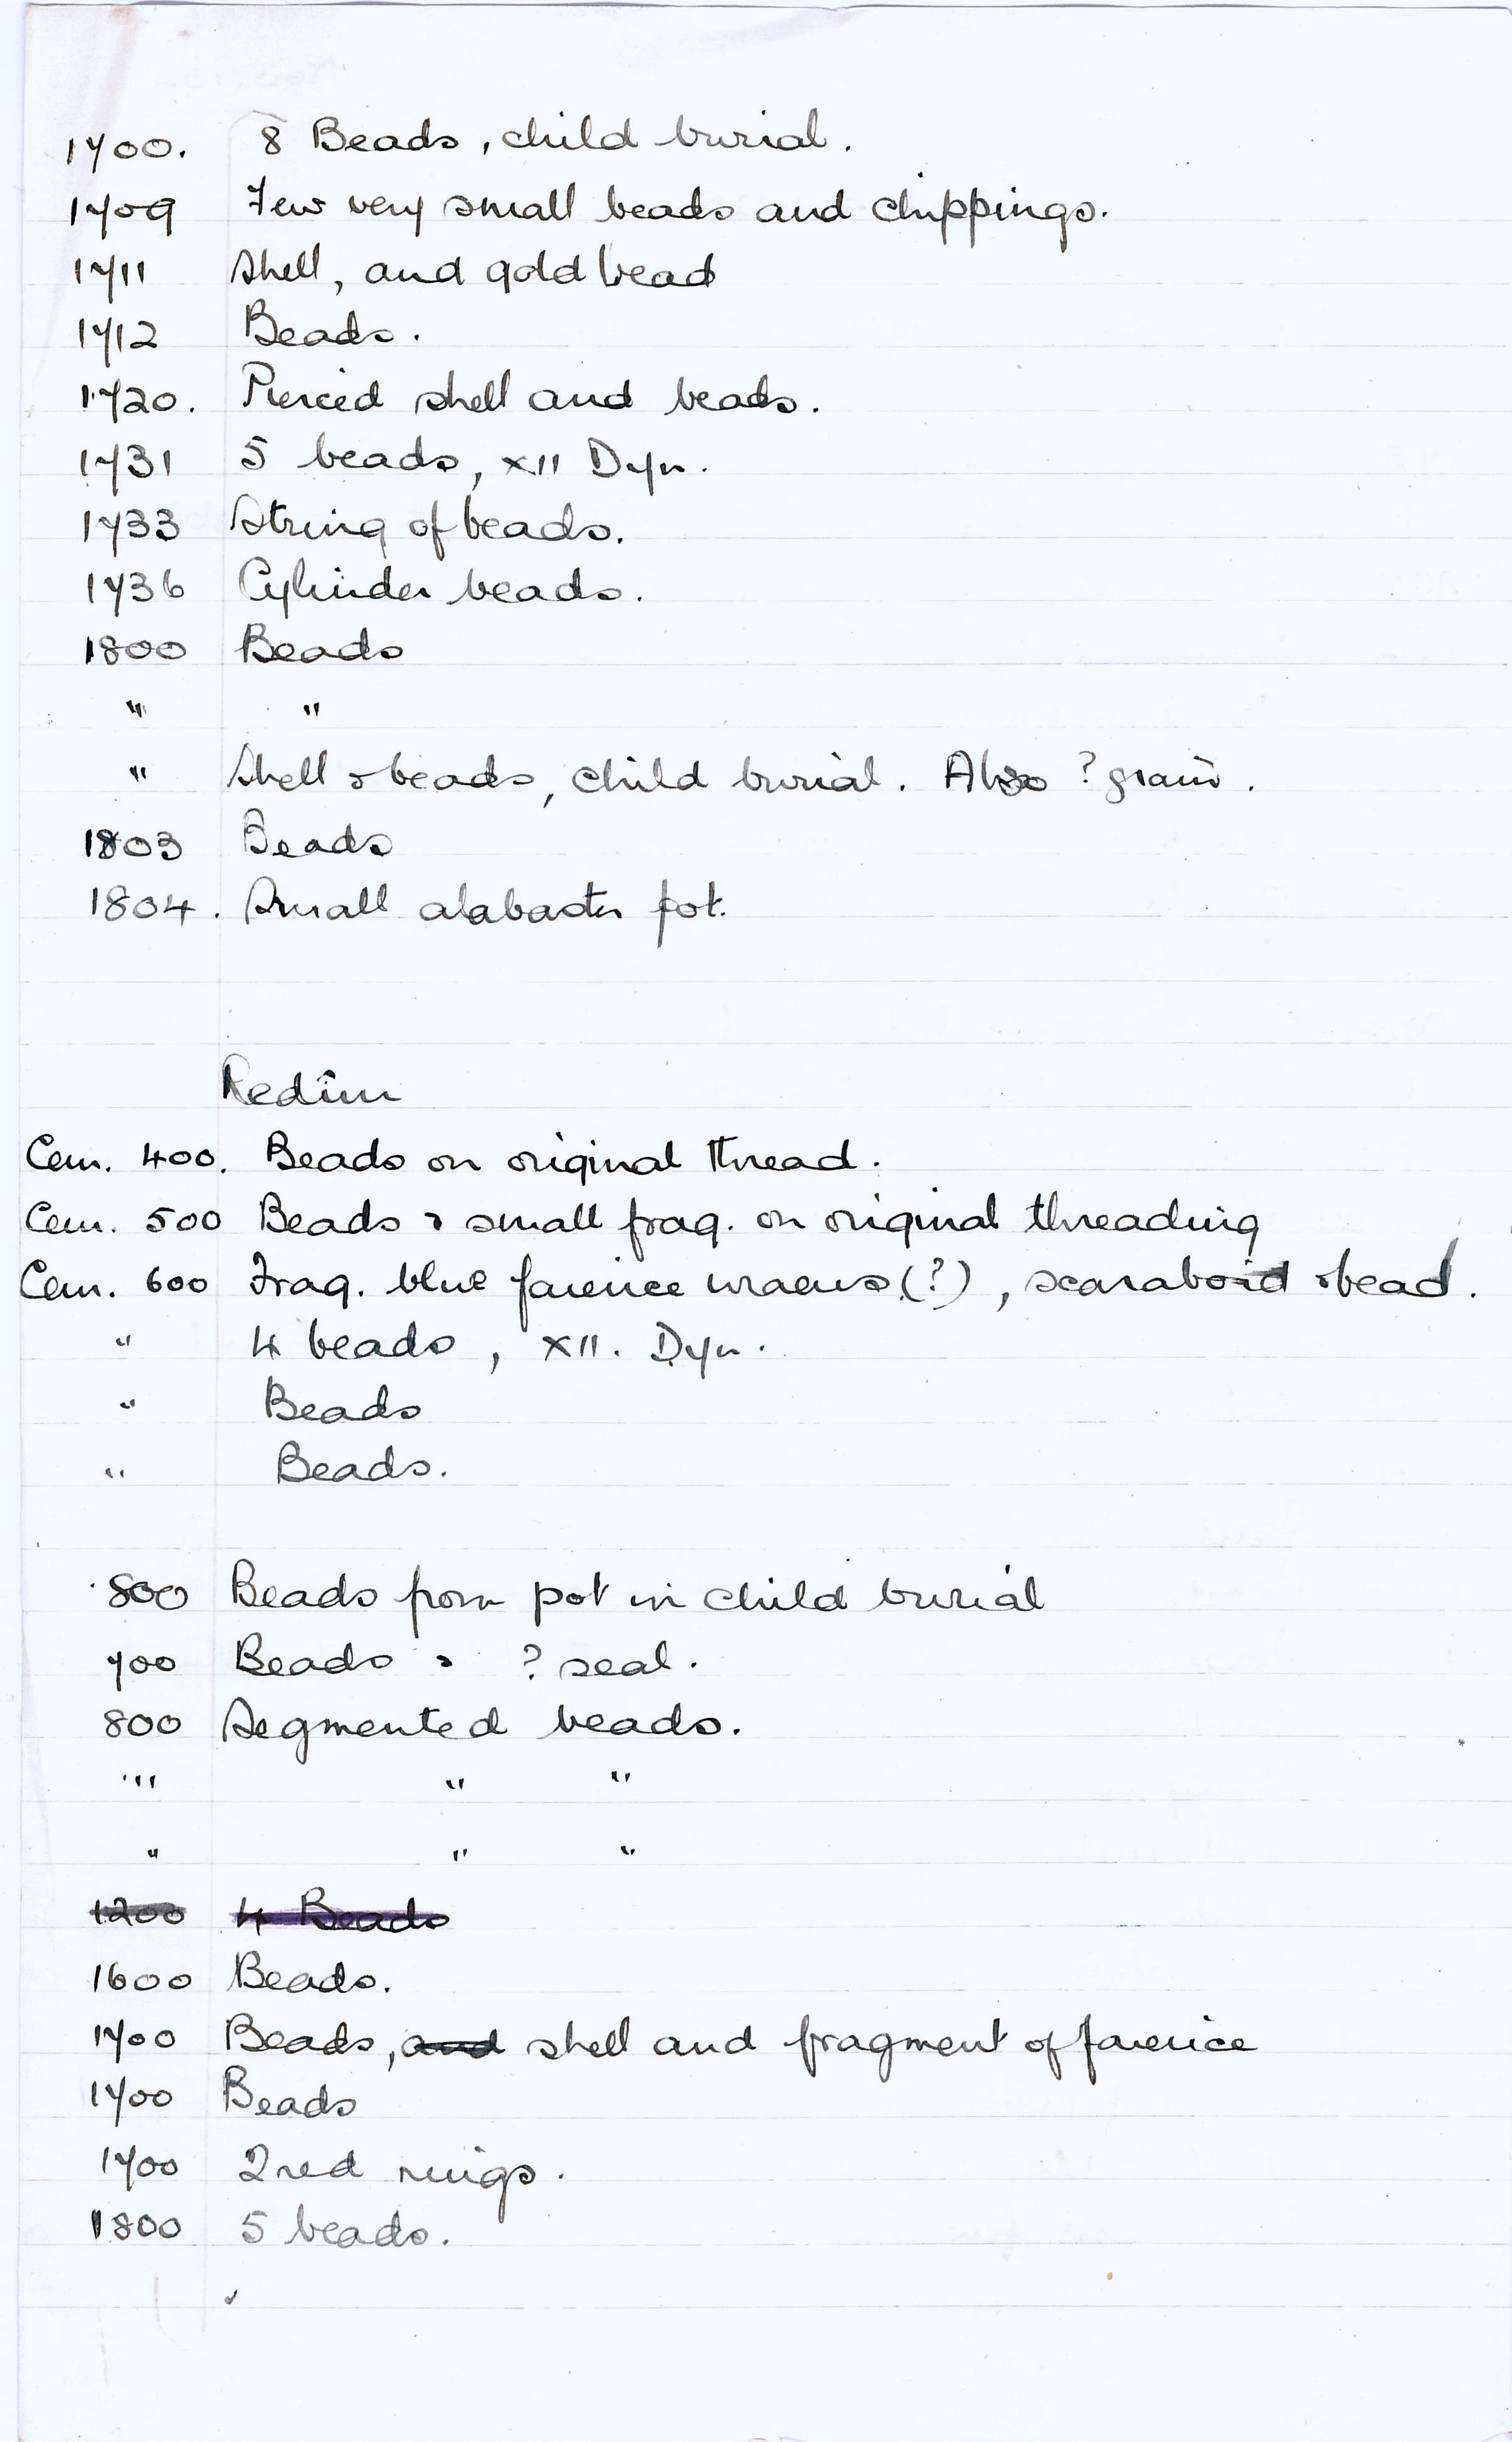 1700. 8 Beads, child burial.
1709 Few very small beads and chippings.
1711 Shell, and gold bead
1712 Beads.
1720. Pierced shell and beads.
1731 5 beads, XII Dyn.
1733 String of beads.
1736 Cylinder beads.
1800 Beads
" "
" Shell & beads, child burial. Also ? grain.
1803 Beads
1804. Small alabaster pot.
Cem. 400. Beads on original thread.
Cem. 500 Beads & small frag. on original threading
Cem. 600 Frag. blue faience uraeus (?), scaraboid & bead.
" 4 beads, XII. Dyn.
" Beads
" Beads.
800 Beads from pot in child burial
700 Beads & ? seal.
800 Segmented beads.
" " "
" " "
1200 4 Beads
1600 Beads.
1700 Beads, and shell and fragment of faience
1700 Beads
1700 2 red rings.
1800 5 beads.